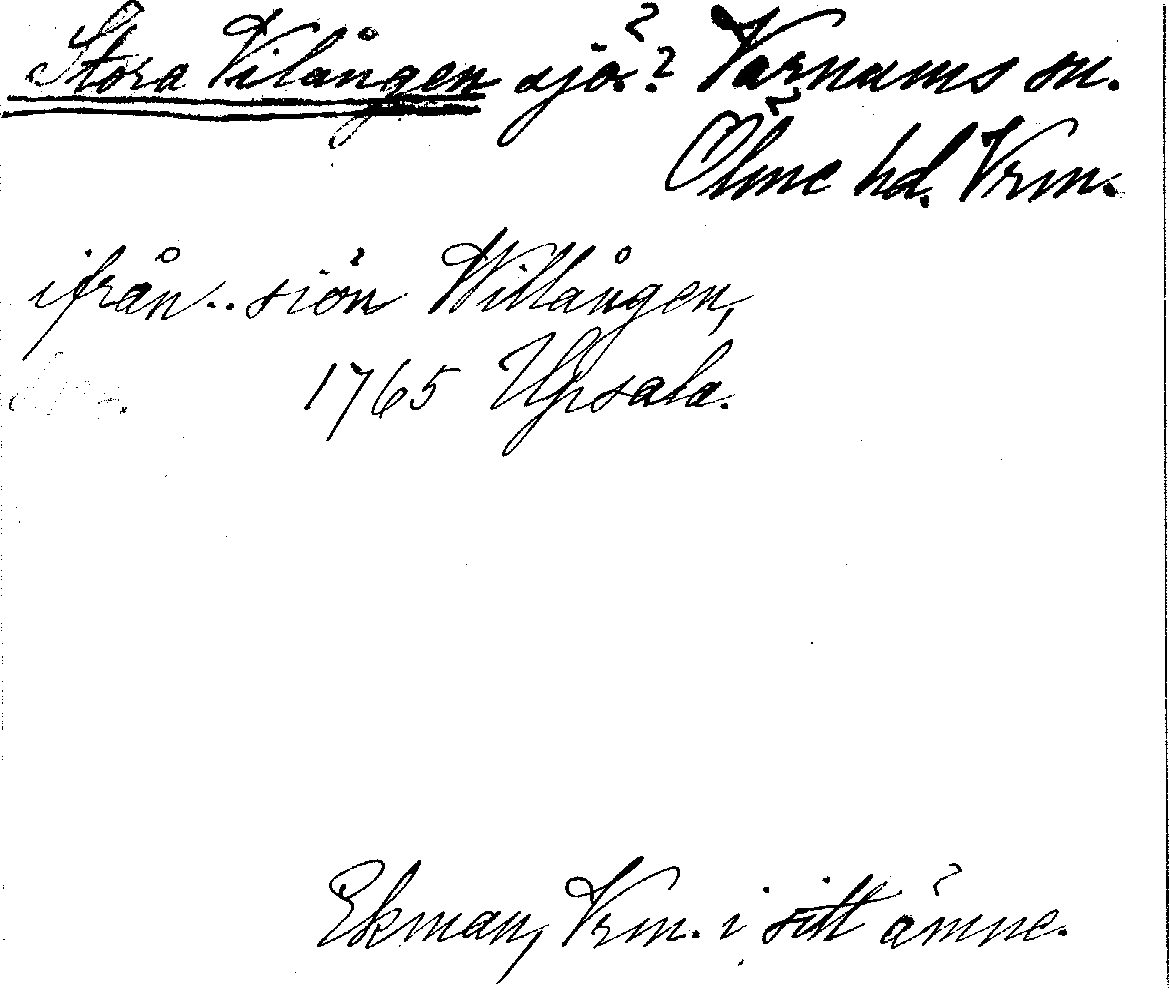 Stora Vilången sjö? Varnums sn.
Ölme hd. Vrm.
ifrån .. siön Willången,
1765 Upsala.
Ekman, Vrm. i sitt ämne.